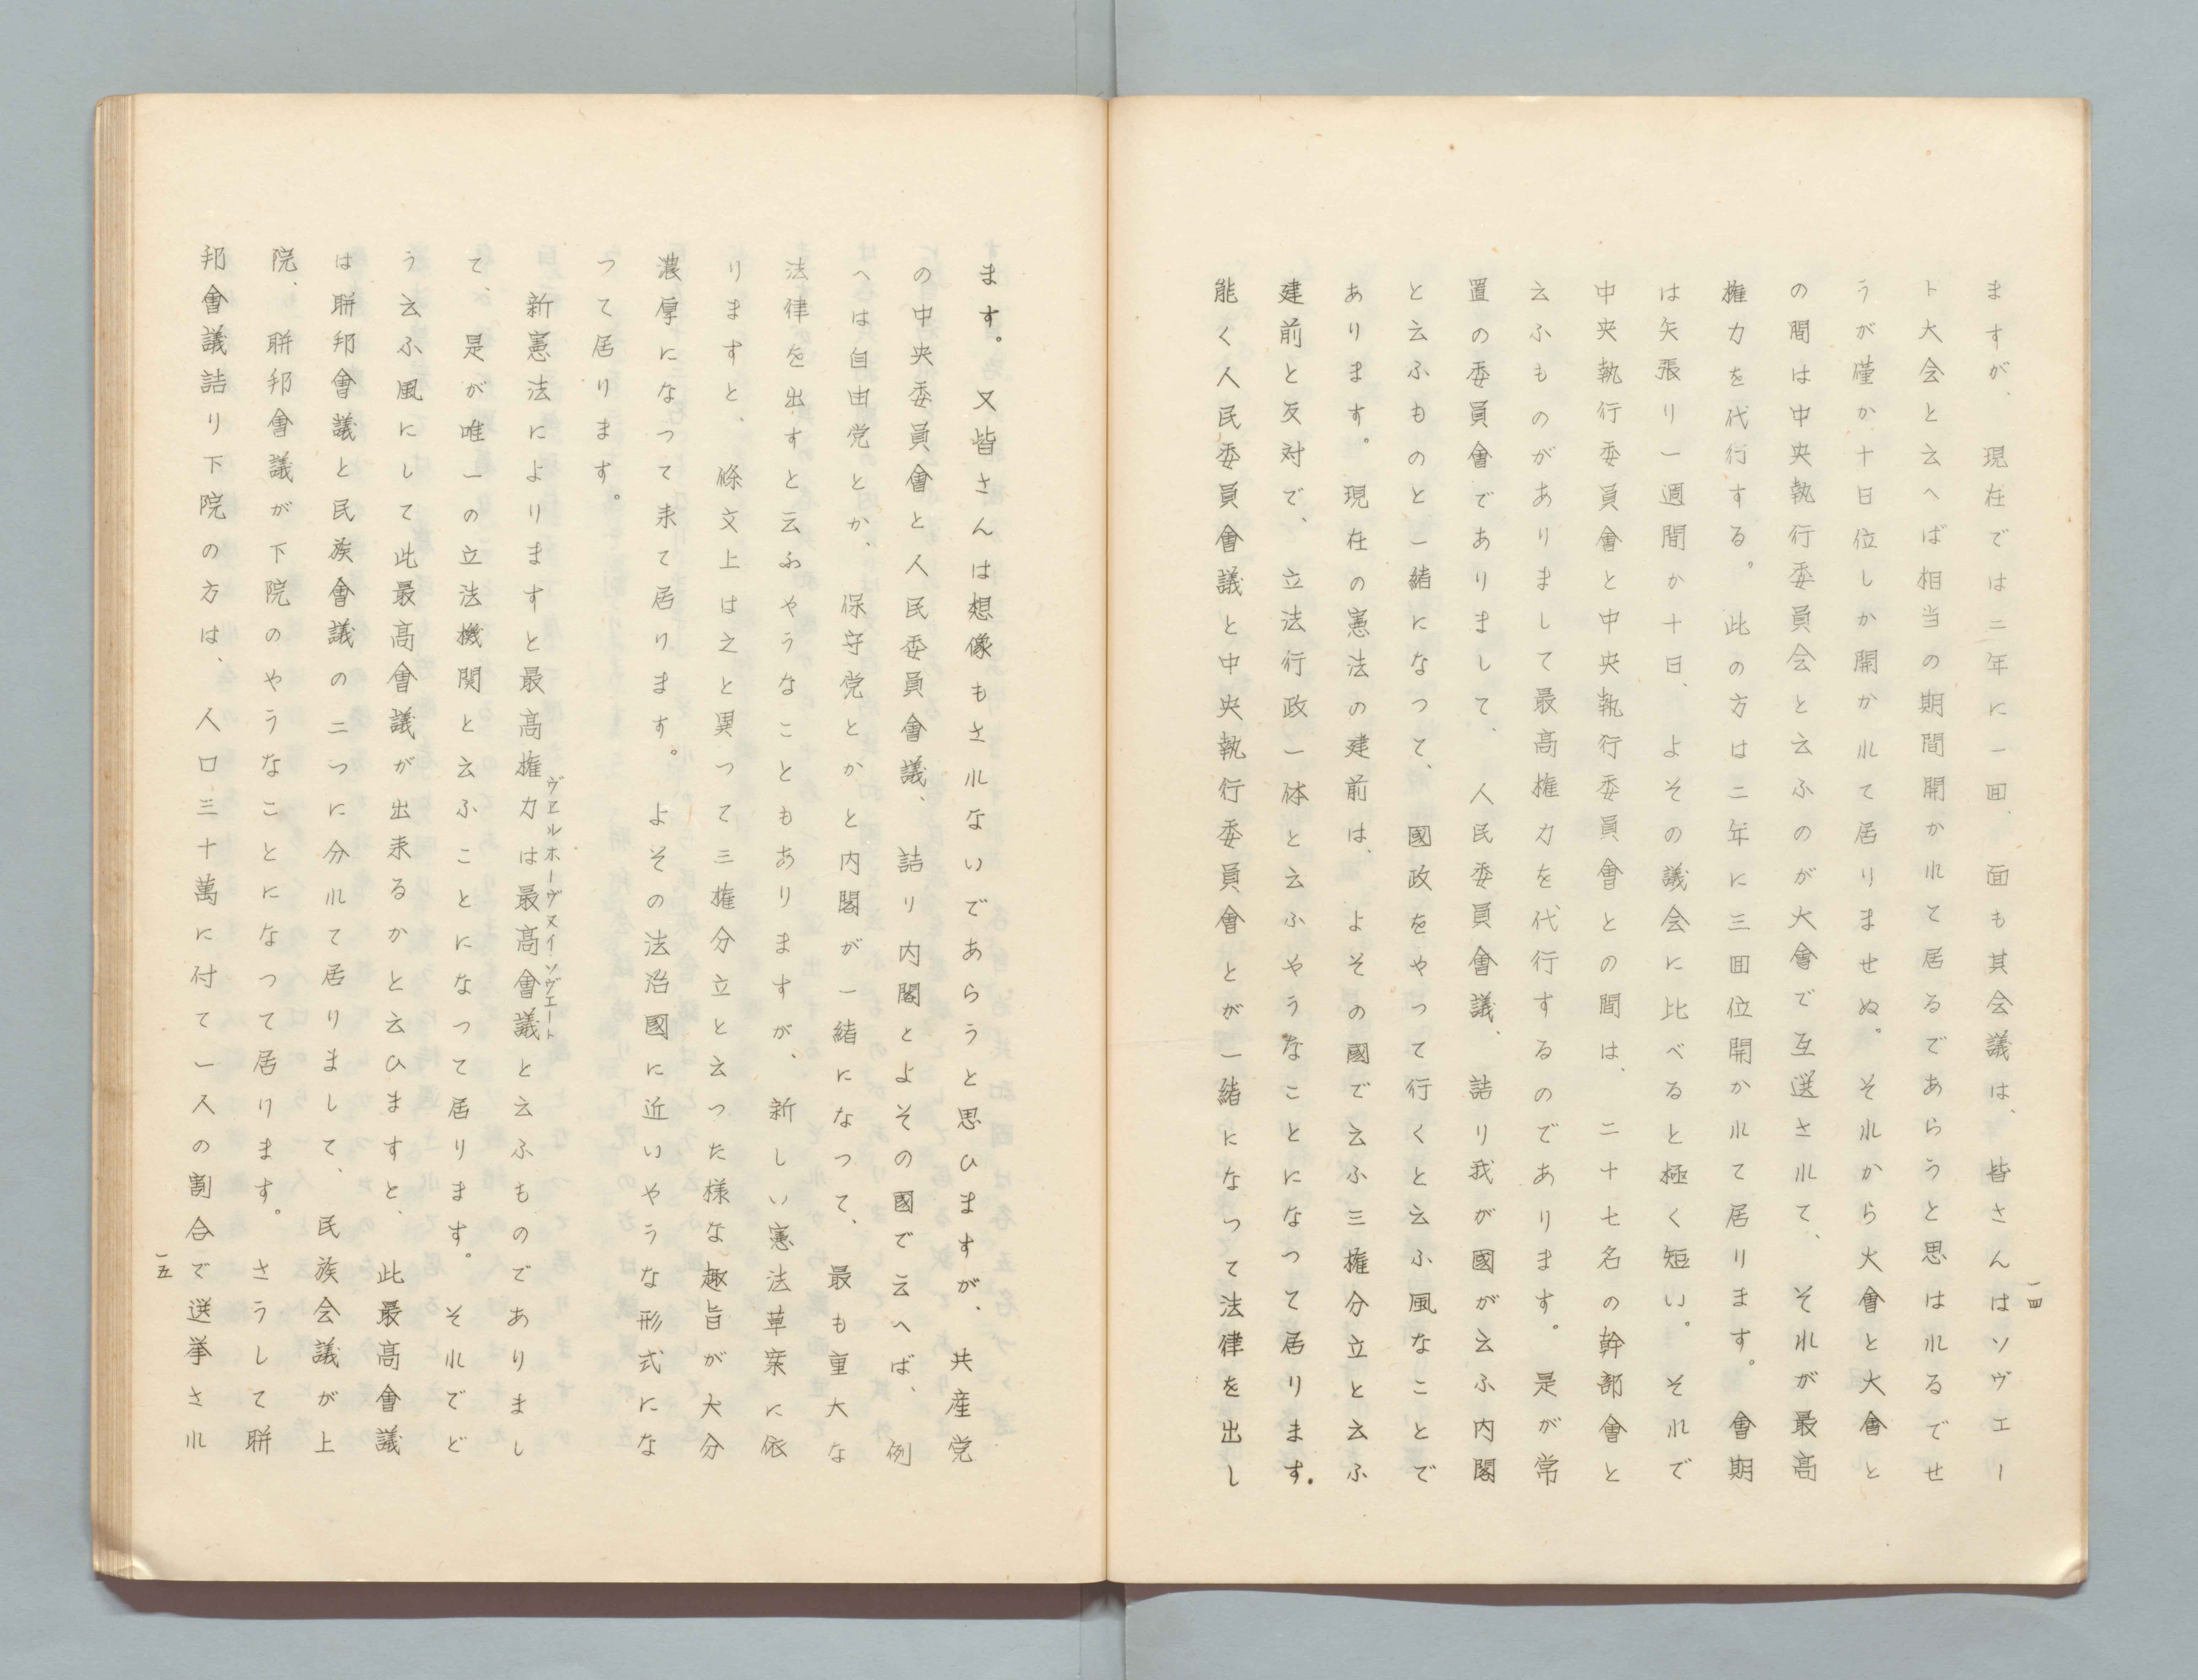 一四
ますが、現在では二年に一囬、囬も其会議は、皆さんはソヴエー
ト大会と云へば相当の期間開かれて居るであらうと思はれるでせ
うが僅か十日位しか開かれて居りませぬ。それから大會と大會と
の間は中央執行委員会と云ふのが大會で互選されて、それが最高
権力を代行する。此の方は二年に三囬位開かれて居ります。會期
は矢張り一週間か十日、よその議会に比べると極く短い。それで
中央執行委員會と中央執行委員會との間は、二十七名の幹部會と
云ふものがありまして最高権力を代行するのであります。是が常
置の委員會でありまして、人民委員會議、詰り我が國が云ふ内閣
と云ふものと一緒になつて、國政をやつて行くと云ふ風なことで
あります。現在の憲法の建前は、よその國で云ふ三権分立と云ふ
建前と反対で、立法行政一体と云ふやうなことになつて居ります.
能く人民委員會議と中央執行委員會とが一緒になつて法律を出し
ます。又皆さんは想像もされないであらうと思ひますが、共産党
の中央委員會と人民委員會議、詰り内閣とよその國で云へば、例
へは自由党とか、保守党とかと内閣が一緒になつて、最も重大な
法律を出すと云ふやうなこともありますが、新しい憲法草案に依
りますと、條文上は之と異つて三権分立と云つた様な趣旨が大分
濃厚になつて来て居ります。よその法治國に近いやうな形式にな
つて居ります。
新憲法によりますと最高権力は最高會議と云ふものでありまし
ヴエルホーヴヌイソヴエート
て、是が唯一の立法機関と云ふことになつて居ります。それでど
う云ふ風にして此最高會議が出来るかと云ひますと、此最高會議
は聨邦會議と民族會議の二つに分れて居りまして、民族会議が上
院、聨邦會議が下院のやうなことになつて居ります。さうして聨
邦會議詰り下院の方は、人口三十萬に付て一人の割合で選挙され
一五